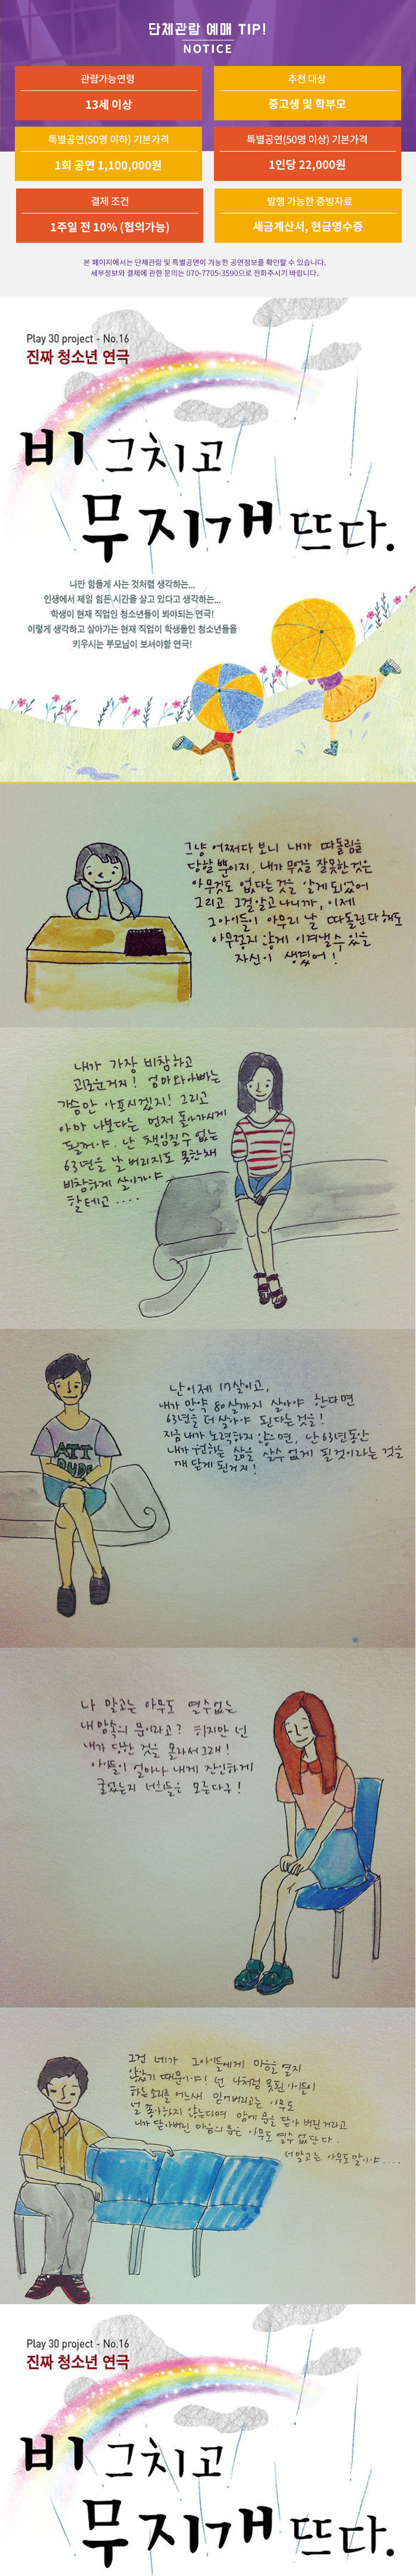 단체관람 예매 TIP!
NOTICE
관람가능연령
13세 이상
추천 대상
중고생 및 학부모
특별공연(50명 이하) 기본가격
1회 공연 1,100,000원
특별공연(50명 이상) 기본가격
1인당 22,000원
결제 조건
1주일 전 10% (협의가능)
발행 가능한 증빙자료
세금계산서, 현금영수증
본 페이지에서는 단체관람 및 특별공연이 가능한 공연정보를 확인할 수 있습니다.
세부정보와 결제에 관한 문의는 070-7705-3590으로 전화주시기 바랍니다.
Play 30 project - No.16
진짜 청소년 연극
비 그치고
무지개 뜨다.
나만 힘들게 사는 것처럼 생각하는...
인생에서 제일 힘든 시간을 살고 있다고 생각하는...
학생이 현재 직업인 청소년들이 봐야되는 연극!
이렇게 생각하고 살아가는 현재 직업이 학생들인 청소년들을
키우시는 부모님이 보셔야할 연극!
그냥 어쩌다 보니 내가 따돌림을
당할 뿐이지, 내가 무엇을 잘못한 것은
아무것도 없다는 것을 알게 되었어
그리고 그걸 알고 나니까, 이제
그 아이들이 아무리 날 따돌린다 해도
아무렇지 않게 이겨낼 수 있을
자신이 생겼어!
내가 가장 비참하고
괴로운거지! 엄마와 아빠는
가슴만 아프시겠지! 그리고
아마 나보다는 먼저 돌아가시게
될꺼야. 난 책임질 수 없는
63년을 날 버리지도 못한 채
비참하게 살아가야
할테고 ....
난 이제 17살이고,
내가 만약 80살까지 살아야 한다면
63년을 더 살아야 된다는 것을!
지금 내가 노력하지 않으면, 난 63년동안
내가 원하는 삶을 살 수 없게 될 것이라는 것을
깨닫게 된거지!
나 말고는 아무도 열 수 없는
내 맘속의 문이라고? 하지만 넌
내가 당한 것을 몰라서 그래!
아이들이 얼마나 내게 잔인하게
굴었는지 너희들은 모른다구!
그건 네가 그 아이들에게 마음을 열지
않았기 때문이야! 넌 나처럼 못된 아이들이
하는 소리를 어느새 믿어버리고는 아무도
널 좋아하지 않는다며 맘에 문을 닫아 버린 거라고
너가 닫아버린 마음의 문은 아무도 열 수 없단다
너 말고는 아무도 말이야....
Play 30 project - No.16
진짜 청소년 연극
비 그치고
무지개 뜨다.